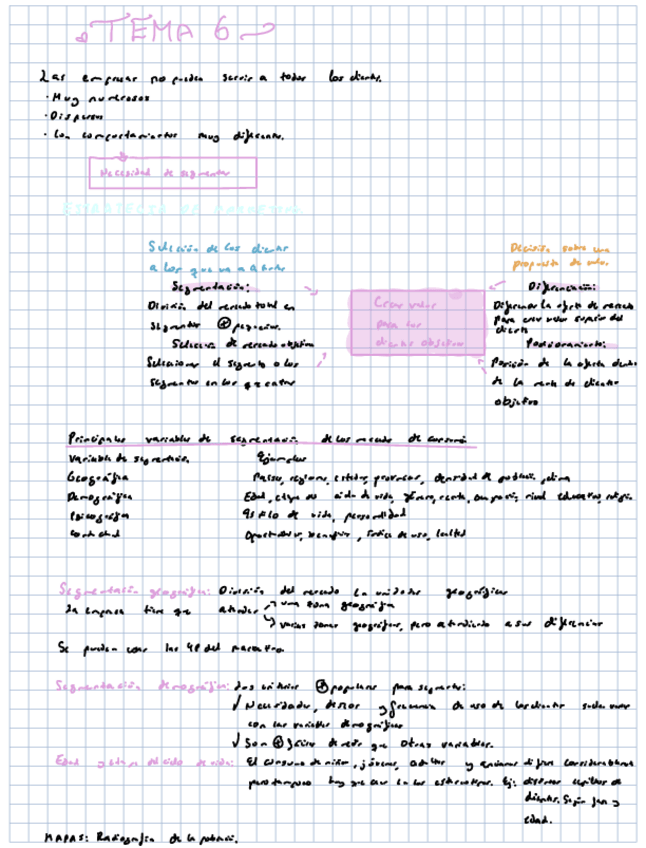 TEMA 6
Las empresas no pueden servir a todos los clientes.
· Muy numerosos
· Dispersos
· Con comportamientos muy diferentes.
Necesidad de segmentar
ESTRATEGIA DE MARKETING
Selección de los clientes
a los que va a atender
Segmentación:
División del mercado total en
segmentos ⊕ pequeños.
Selección de mercado objetivo
Seleccionar el segmento o los
segmentos en los que entrar
Crear valor
para los
clientes objetivo
Decisión sobre una
propuesta de valor.
Diferenciación:
Diferenciar la oferta de mercado
para crear valor superior del
cliente
Posicionamiento:
Posición de la oferta dentro
de la mente de cliente
objetivo
Principales variables de segmentación de los mercados de consumo
Variables de segmentación. Ejemplos
Geográfica Países, regiones, estados, provincias, densidad de población, clima
Demográfica Edad, etapa del ciclo de vida, género, renta, ocupación, nivel educativo, religión
Psicográfica Estilo de vida, personalidad
Conductual Oportunidades, beneficios, índice de uso, lealtad
Segmentación geográfica: División del mercado en unidades geográficas
La empresa tiene que atender → una zona geográfica
→ varias zonas geográficas, pero atendiendo a sus diferencias
Se pueden usar las 4P del marketing.
Segmentación demográfica: Los criterios ⊕ populares para segmentar:
✓ Necesidades, deseos y frecuencia de uso de los clientes suele variar
con las variables demográficas
✓ Son ⊕ fáciles de medir que otras variables.
Edad y etapa del ciclo de vida: El consumo de niños, jóvenes, adultos y ancianos difiere considerablemente
pero tampoco hay que caer en los estereotipos. Ej: distintos cepillos de
dientes. Según fam y
edad.
MAPAS: Radiografía de la población.